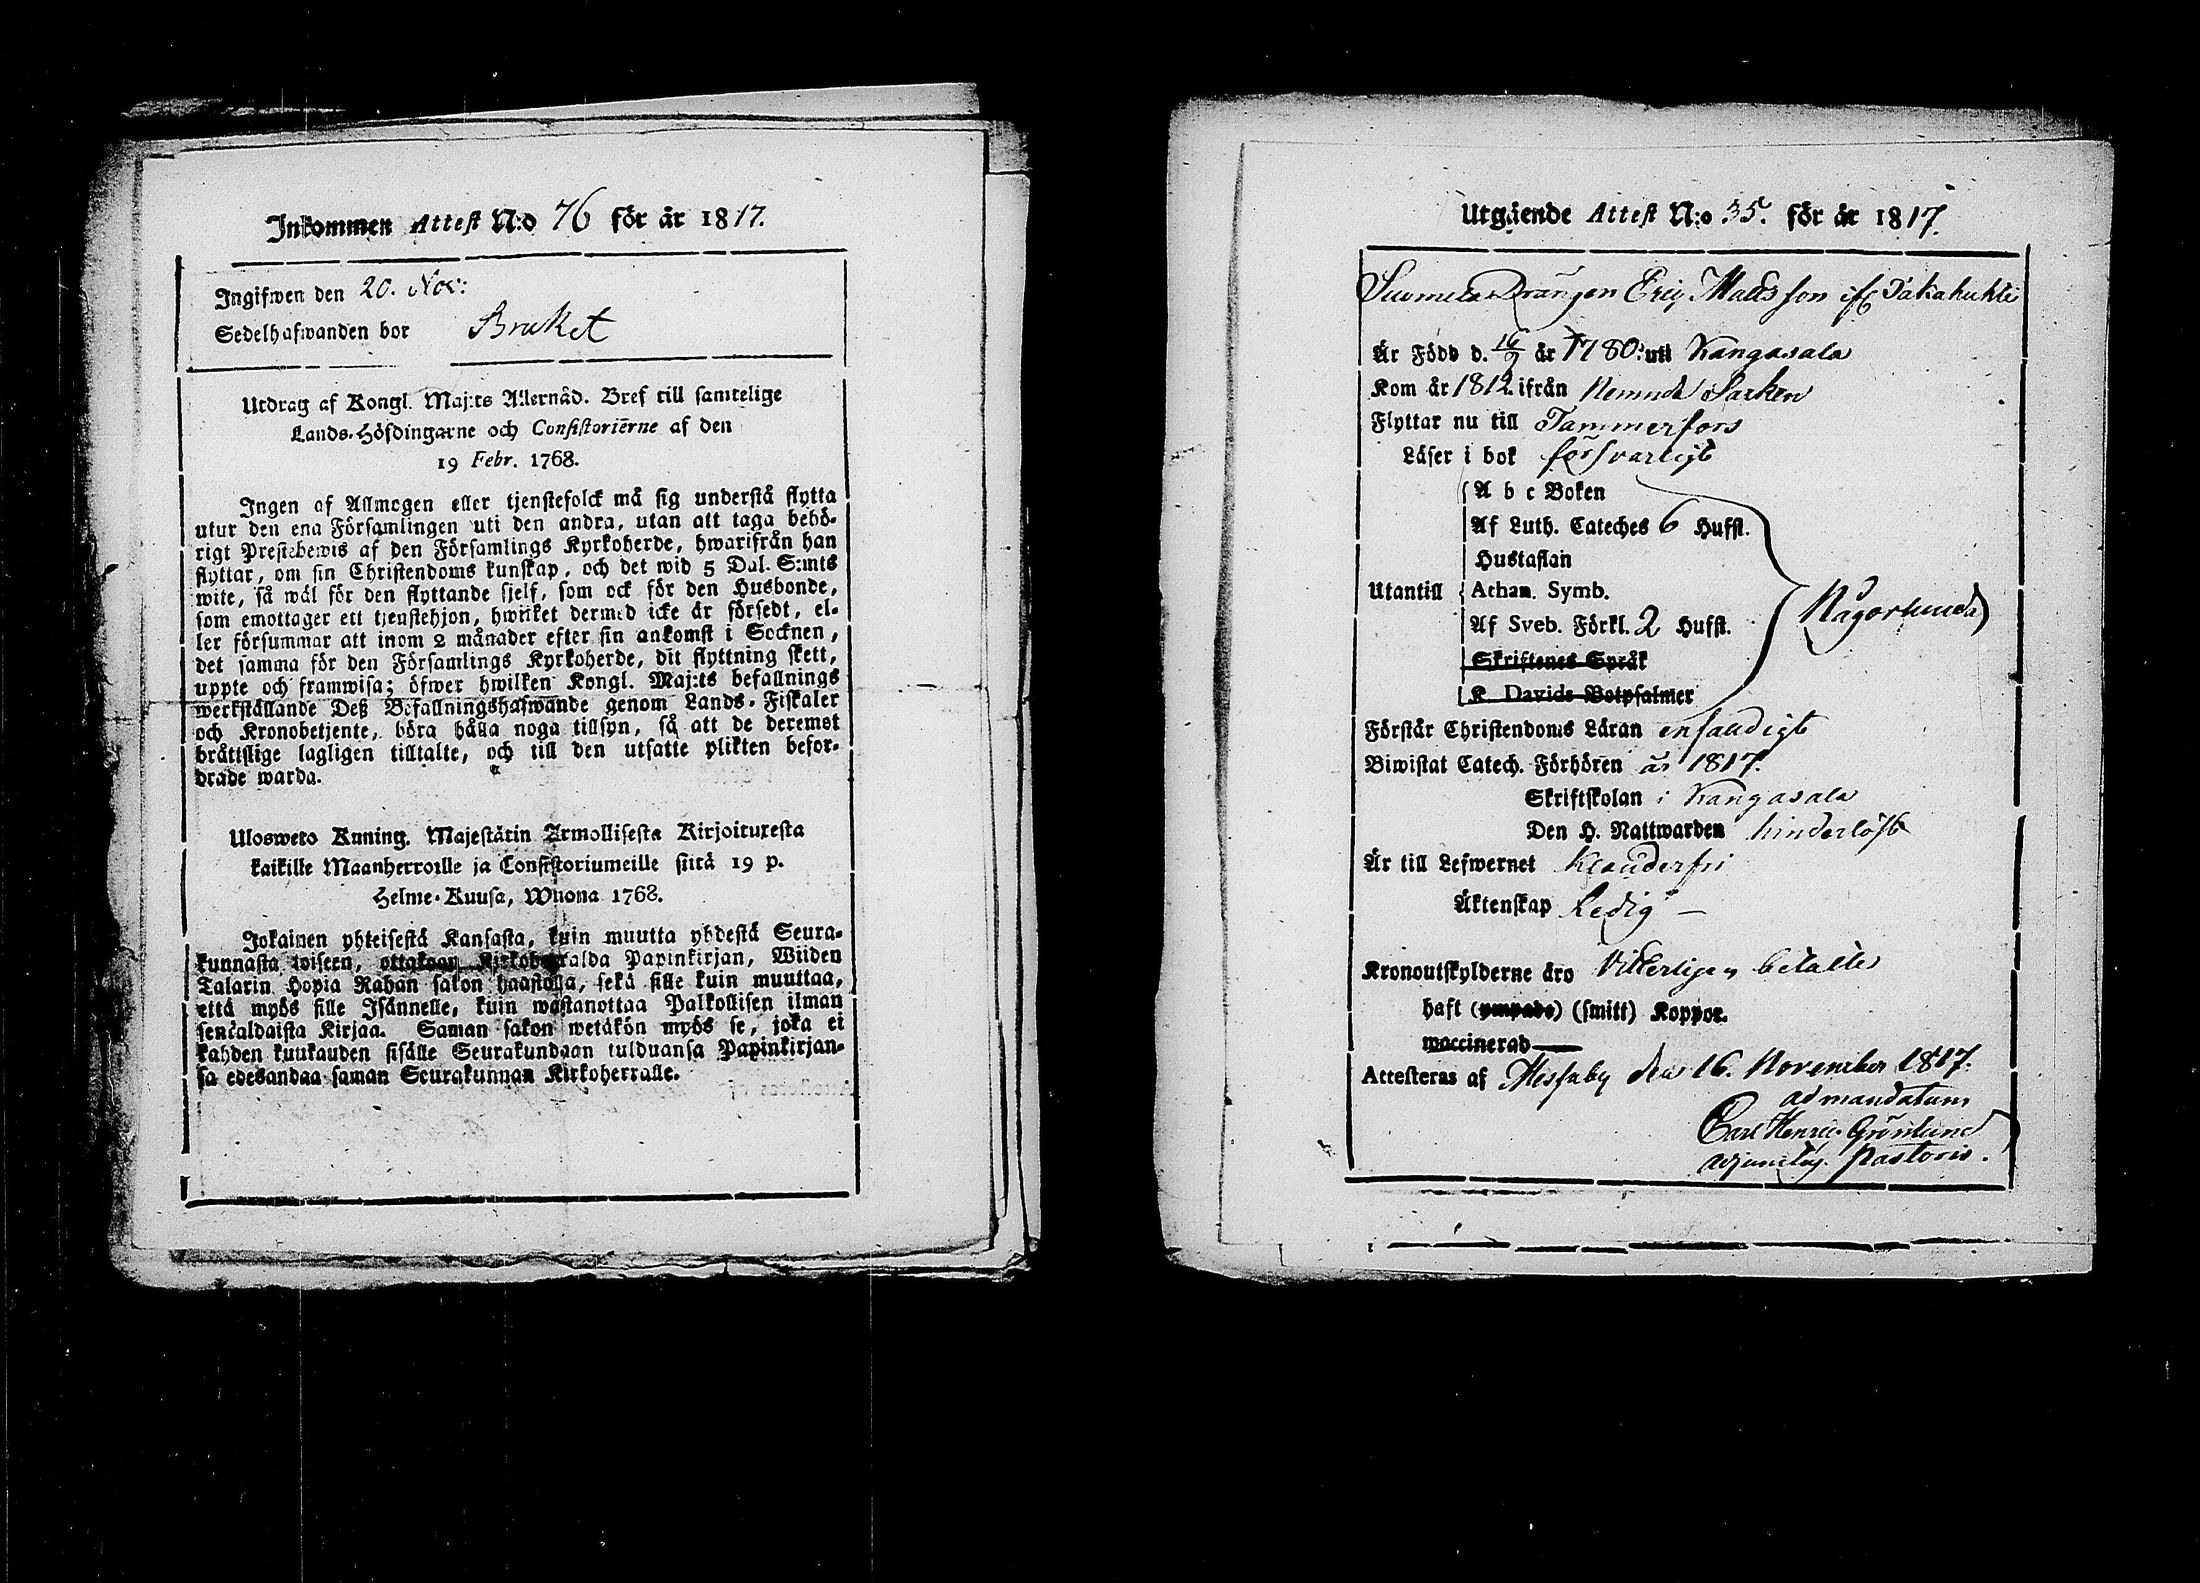 Inkommen Attest N:o 76 för år 1817.
Ingifwen den 20. Nov:
Sedelhafwanden bor Bruket
Utdrag af Kongl. Maj:ts Allernåd. Bref till samtelige
Lands-Höfdingarne och Consistorierne af den
19 Febr. 1768.
Ingen af Allmogen eller tjenstefolck må sig understå flytta
utur den ena Församlingen uti den andra, utan att taga behö-
rigt Prestebewis af den Församlings Kyrkoherde, hwarifrån han
flyttar, om sin Christendoms kunskap, och det wid 5 Dal. S:mts
wite, så wäl för den flyttande sjelf, som ock för den Husbonde,
som emottager ett tjenstehjon, hwilket dermed icke är försedt, el-
ler försummar att inom 2 månader efter sin ankomst i Socknen,
det samma för den Församlings Kyrkoherde, dit flyttning skett,
uppte och framwisa; öfwer hwilken Kongl. Maj:ts befallnings
werkställande Deß Befallningshafwande genom Lands-Fiskaler
och Kronobetjente, böra hålla noga tillsyn, så att de deremot
bråttslige lagligen tilltalte, och till den utsatte plikten befor-
drade warda.
Ulosweto Kuning. Majestätin Armollisesta Kirjoituxesta
kaikille Maanherroille ja Consistoriumeille siitä 19 p.
Helme-Kuusa, Wuona 1768.
Jokainen yhteisestä Kansasta, kuin muutta yhdestä Seura-
kunnasta toiseen, ottakoon Kirkoherralda Papinkirjan, Wiiden
Talarin Hopia Rahan sakon haastolla, sekä sille kuin muuttaa,
että myös sille Isännelle, kuin wastanottaa Palkollisen ilman
sencaldaista Kirjaa. Saman sakon wetäkön myös se, joka ei
kahden kuukauden sisälle Seurakundaan tulduansa Papinkirjan-
sa edesandaa saman Seurakunnan Kirkoherralle.
Utgående Attest N:o 35. för år 1817.
Drängen Eric Mattsson ifr Takahuhti
Är Född d. 16/2 år 1780. uti Kangasala
Kom år 1812. ifrån Nemnde Socken
Flyttar nu till Tammerfors
Läser i bok försvarligt
A b c Boken
Af Luth. Cateches 6 Hufst.
Hustaflan
Utantill Athan. Symb.
Af Sveb. Förkl. 2 Hufst.
Skriftenes Språk
K. Davids Botpsalmer
Någorlunda
Förstår Christendoms Läran enfaldigt
Biwistat Catech. Förhören år 1817.
Skriftskolan i Kangasala
Den H. Nattwarden hinderlöst
Är till Lefwernet Klanderfri
Äktenskap Ledig —
Kronoutskylderne äro Vitterligen betalte
haft (ympade) (smitt) Koppor.
waccinerad
Attesteras af Messuby den 16. November 1817.
ad mandatum
Carl Henric Grönlund
Adjunctus Pastoris.